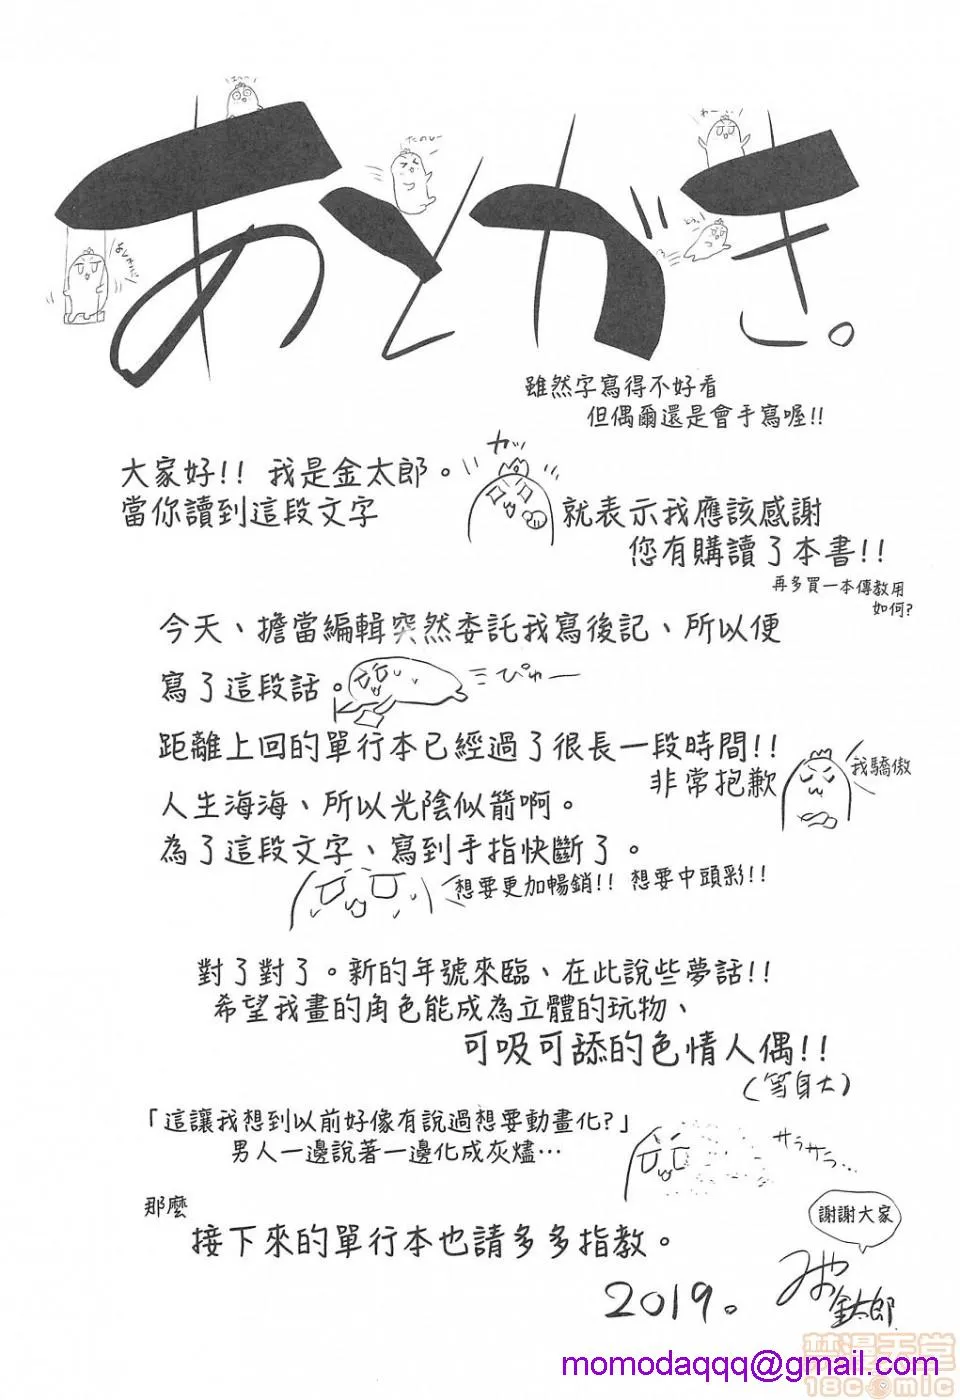 あとがき。
たのしー
わーい
雖然字寫得不好看
但偶爾還是會手寫喔!!
大家好!! 我是金太郎。
當你讀到這段文字
カッ
就表示我應該感謝
您有購讀了本書!!
再多買一本傳教用
如何?
今天、擔當編輯突然委託我寫後記、所以便
寫了這段話。
ぴゅー
距離上回的單行本已經過了很長一段時間!!
非常抱歉
我驕傲
人生海海、所以光陰似箭啊。
為了這段文字、寫到手指快斷了。
想要更加暢銷!! 想要中頭彩!!
對了對了。新的年號來臨、在此說些夢話!!
希望我畫的角色能成為立體的玩物、
可吸可舔的色情人偶!!
(等身大)
「這讓我想到以前好像有說過想要動畫化?」
男人一邊說著一邊化成灰燼…
サラサラ…
那麼
接下來的單行本也請多多指教。
謝謝大家
2019。
みやお
金太郎
禁漫天堂
18comic
momodaqqq@gmail.com